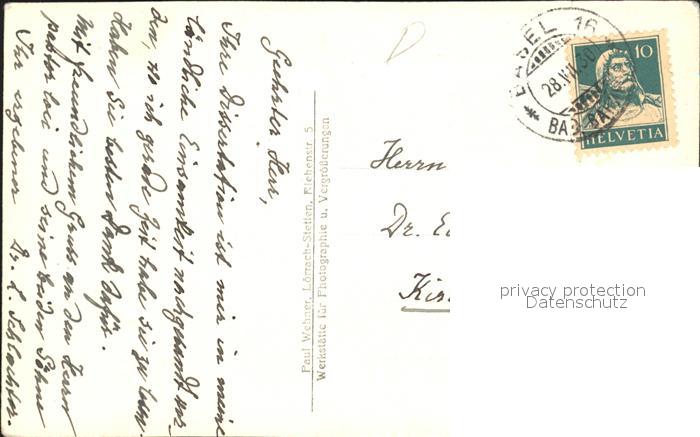 Geehrter Herr,
Ihre Dissertation ist mir in meine
ländliche Einsamkeit nachgesandt wor-
den, wo ich gerade Zeit habe sie zu lesen.
Haben Sie besten Dank dafür.
Mit freundlichem Gruss an den Herrn
pastor loci und seine beiden Söhne
Ihr ergebener Dr. L. Schlachter.
Paul Wehner, Lörrach-Stetten, Riehenstr. 5
Werkstätte für Photographie u. Vergrößerungen
BASEL 16
28.VII.30
10
HELVETIA
Herrn
Dr.
privacy protection
Datenschutz